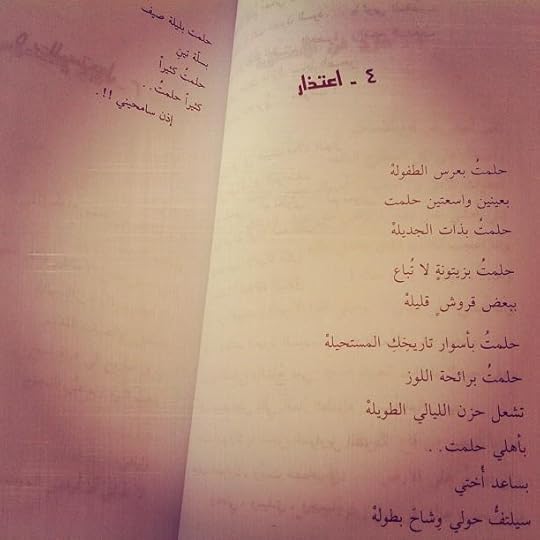 ٤ - اعتذار
حلمتُ بعرس الطفولهْ
بعينين واسعتين حلمت
حلمتُ بذات الجديلهْ
حلمتُ بزيتونةٍ لا تُباع
ببعض قروشٍ قليلهْ
حلمتُ بأسوار تاريخكِ المستحيلهْ
حلمتُ برائحة اللوز
تشعل حزن الليالي الطويلهْ
بأهلي حلمت . .
بساعد أُختي
سيلتفُّ حولي وِشاحَ بطولهْ
حلمت بليلة صيف
بسلّة تينِ
حلمتُ كثيراً
كثيراً حلمتُ . .
إذن سامحيني !! .